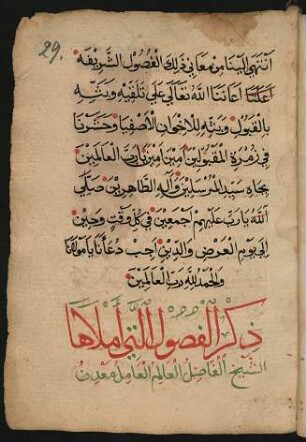 29.
انتهى الينا من معاني ذلك الفصول الشريفه
اعاننا الله تعالى على تلقيه وبثه
بالقبول وبثه للاخوان الاصفيا وحشرنا
في زمرة المقبولين امين امين يا رب العالمين
بجاه سيد المرسلين واله الطاهرين صلي
الله يا رب عليهم اجمعين في كل وقت وحين
الى يوم العرض والدين اجب دعانا يا مولانا
والحمد لله رب العالمين
ذكر الفصول التي املاها
الشيخ الفاضل العالم العامل معدن